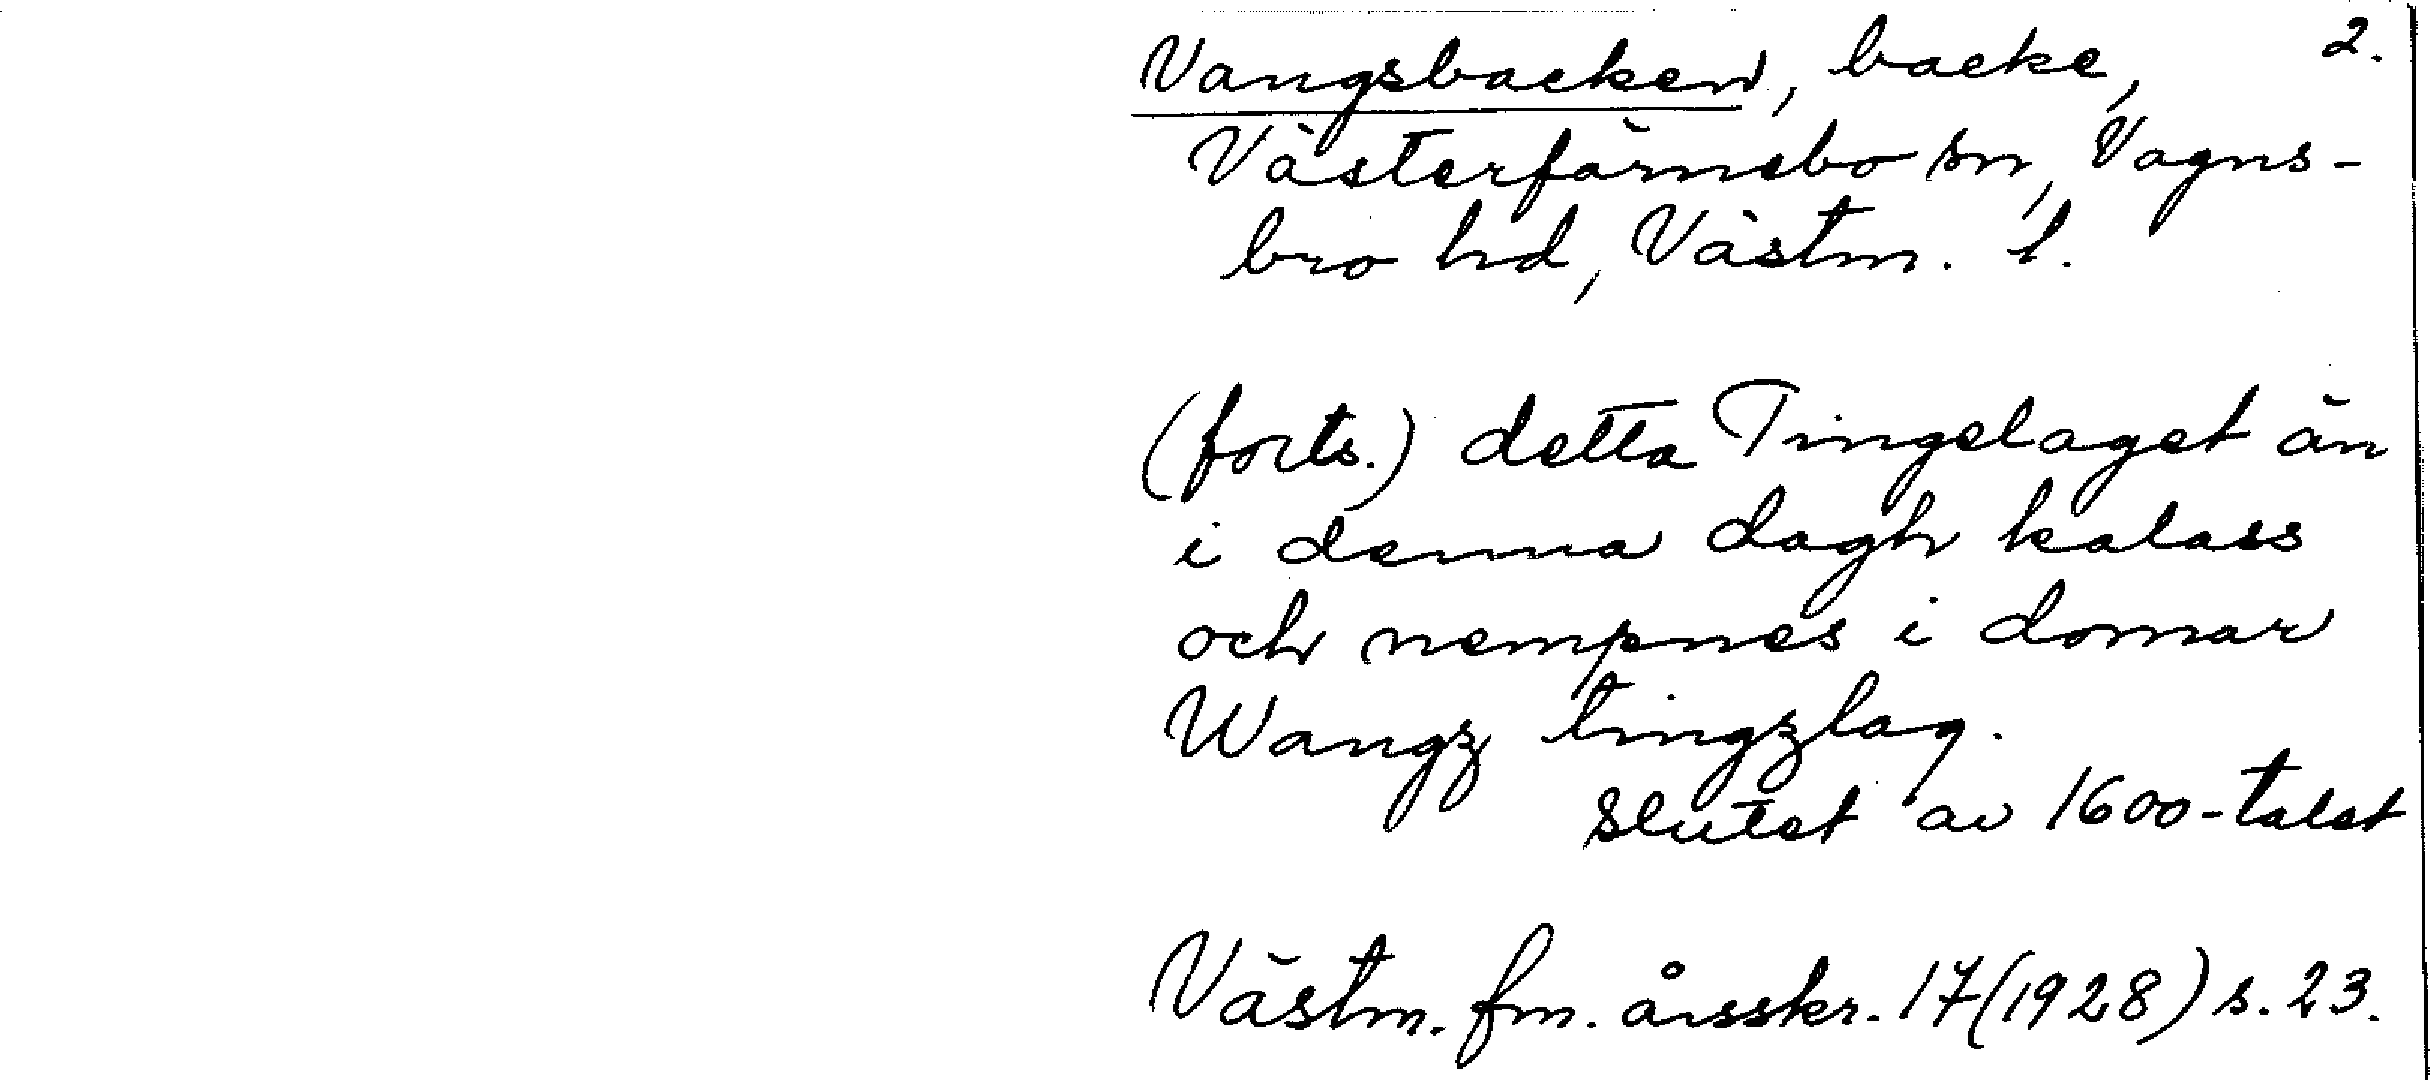 Vangsbacken, backe, 2.
Västerfärnebo sn, Vagns-
bro hd, Västm. l.
(forts.) detta Tingelaget än
i denna dagh kalass
och nempnes i domar
Wangz tingzlag.
Slutet av 1600-talet
Västm. fm. årsskr. 17(1928) s. 23.